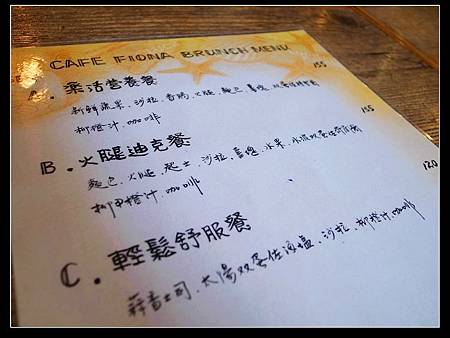 CAFE FIONA BRUNCH MENU
A. 樂活營養餐 155
新鮮蔬果、沙拉、香腸、火腿、麵包、薯塊
柳橙汁、咖啡
B. 火腿迪克餐 155
麵包、火腿、起士、沙拉、薯塊、水果
柳橙汁、咖啡
C. 輕鬆舒服餐 120
蒜香土司、太陽双蛋佐海塩、沙拉、柳橙汁、咖啡